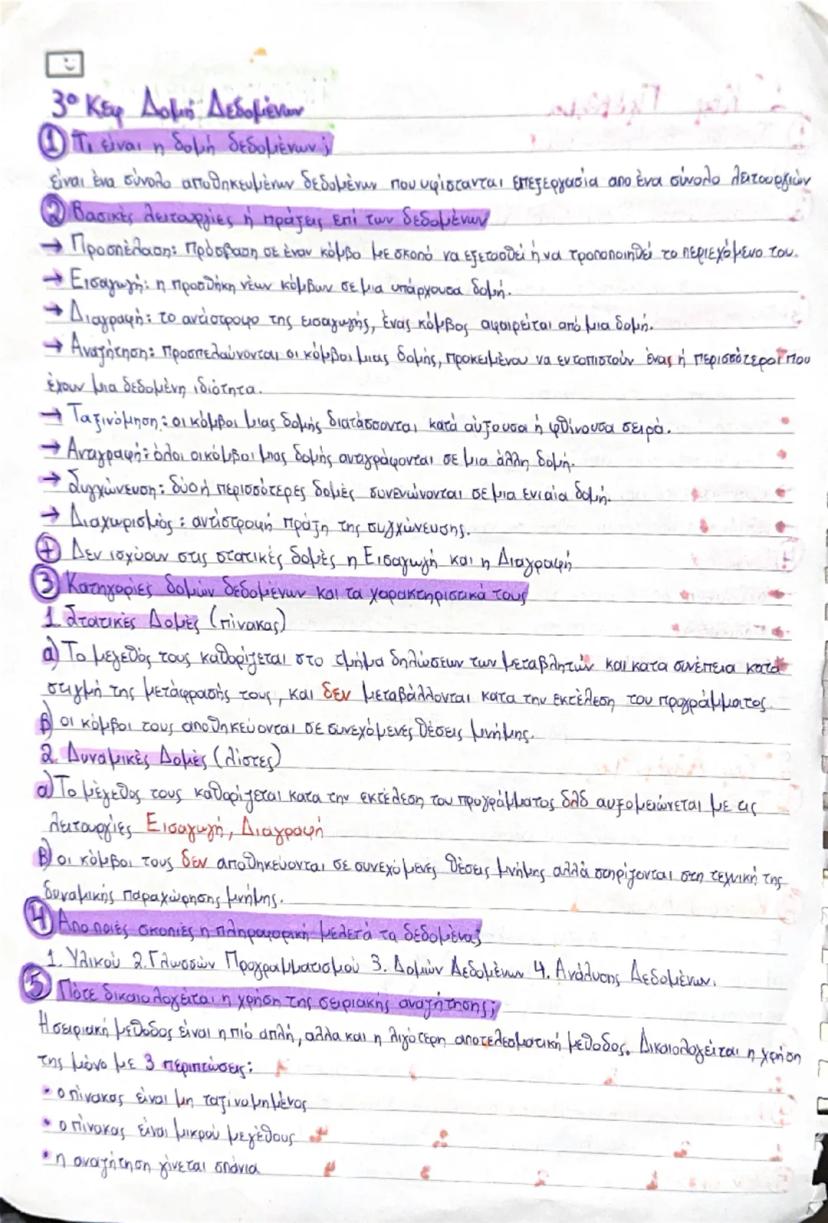 3ο Κεφ Δομή Δεδομένων
① Τι είναι η δομή δεδομένων;
είναι ένα σύνολο αποθηκευμένων δεδομένων που υφίστανται επεξεργασία απο ένα σύνολο λειτουργιών
② Βασικές λειτουργίες ή πράξεις επί των δεδομένων
→ Προσπέλαση: Πρόσβαση σε έναν κόμβο με σκοπό να εξετασθεί ή να τροποποιηθεί το περιεχόμενο του.
→ Εισαγωγή: η προσθήκη νέων κόμβων σε μια υπάρχουσα δομή.
→ Διαγραφή: το αντίστροφο της εισαγωγής, ένας κόμβος αφαιρείται από μια δομή.
→ Αναζήτηση: προσπελαύνονται οι κόμβοι μιας δομής, προκειμένου να εντοπιστούν ένας ή περισσότεροι που
έχουν μια δεδομένη ιδιότητα.
→ Ταξινόμηση: οι κόμβοι μιας δομής διατάσσονται κατά αύξουσα ή φθίνουσα σειρά.
→ Αντιγραφή: όλοι οι κόμβοι μιας δομής αντιγράφονται σε μια άλλη δομή.
→ Συγχώνευση: δύο ή περισσότερες δομές συνενώνονται σε μια ενιαία δομή.
→ Διαχωρισμός: αντίστροφή πράξη της συγχώνευσης.
⊕ Δεν ισχύουν στις στατικές δομές η Εισαγωγή και η Διαγραφή
③ Κατηγορίες δομών δεδομένων και τα χαρακτηριστικά τους
1. Στατικές Δομές (πίνακας)
α) Το μέγεθός τους καθορίζεται στο τμήμα δηλώσεων των μεταβλητών και κατα συνέπεια κατά
στιγμή της μετάφρασής τους, και δεν μεταβάλλονται κατα την εκτέλεση του προγράμματος.
β) οι κόμβοι τους αποθηκεύονται σε συνεχόμενές θέσεις μνήμης.
2. Δυναμικές Δομές (λίστες)
α) Το μέγεθος τους καθορίζεται κατα την εκτέλεση του προγράμματος δλδ αυξομειώνεται με τις
λειτουργίες Εισαγωγή, Διαγραφή
β) οι κόμβοι τους δεν αποθηκεύονται σε συνεχόμενές θέσεις μνήμης αλλά στηρίζονται στη τεχνική της
δυναμικής παραχώρησης μνήμης.
④ Απο ποιές σκοπιές η πληροφορική μελετά τα δεδομένα;
1. Υλικού 2. Γλωσσών Προγραμματισμού 3. Δομών Δεδομένων 4. Ανάλυσης Δεδομένων.
⑤ Πότε δικαιολογείται η χρήση της σειριακής αναζήτησης;
Η σειριακή μέθοδος είναι η πιό απλή, αλλα και η λιγότερη αποτελεσματική μέθοδος. Δικαιολογείται η χρήση
της μόνο με 3 περιπτώσεις:
• ο πίνακας είναι μη ταξινομημένος
• ο πίνακας είναι μικρού μεγέθους
• η αναζήτηση γίνεται σπάνια